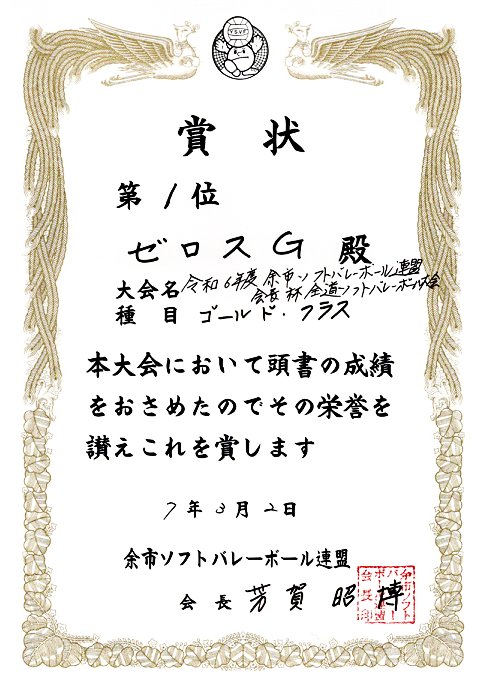 Y.S.V.F
賞状
第1位
ゼロスG 殿
大会名 令和6年度 余市ソフトバレーボール連盟
会長杯 全道ソフトバレーボール大会
種目 ゴールド・クラス
本大会において頭書の成績
をおさめたのでその栄誉を
讃えこれを賞します
7年3月2日
余市ソフトバレーボール連盟
会長 芳賀 昭博